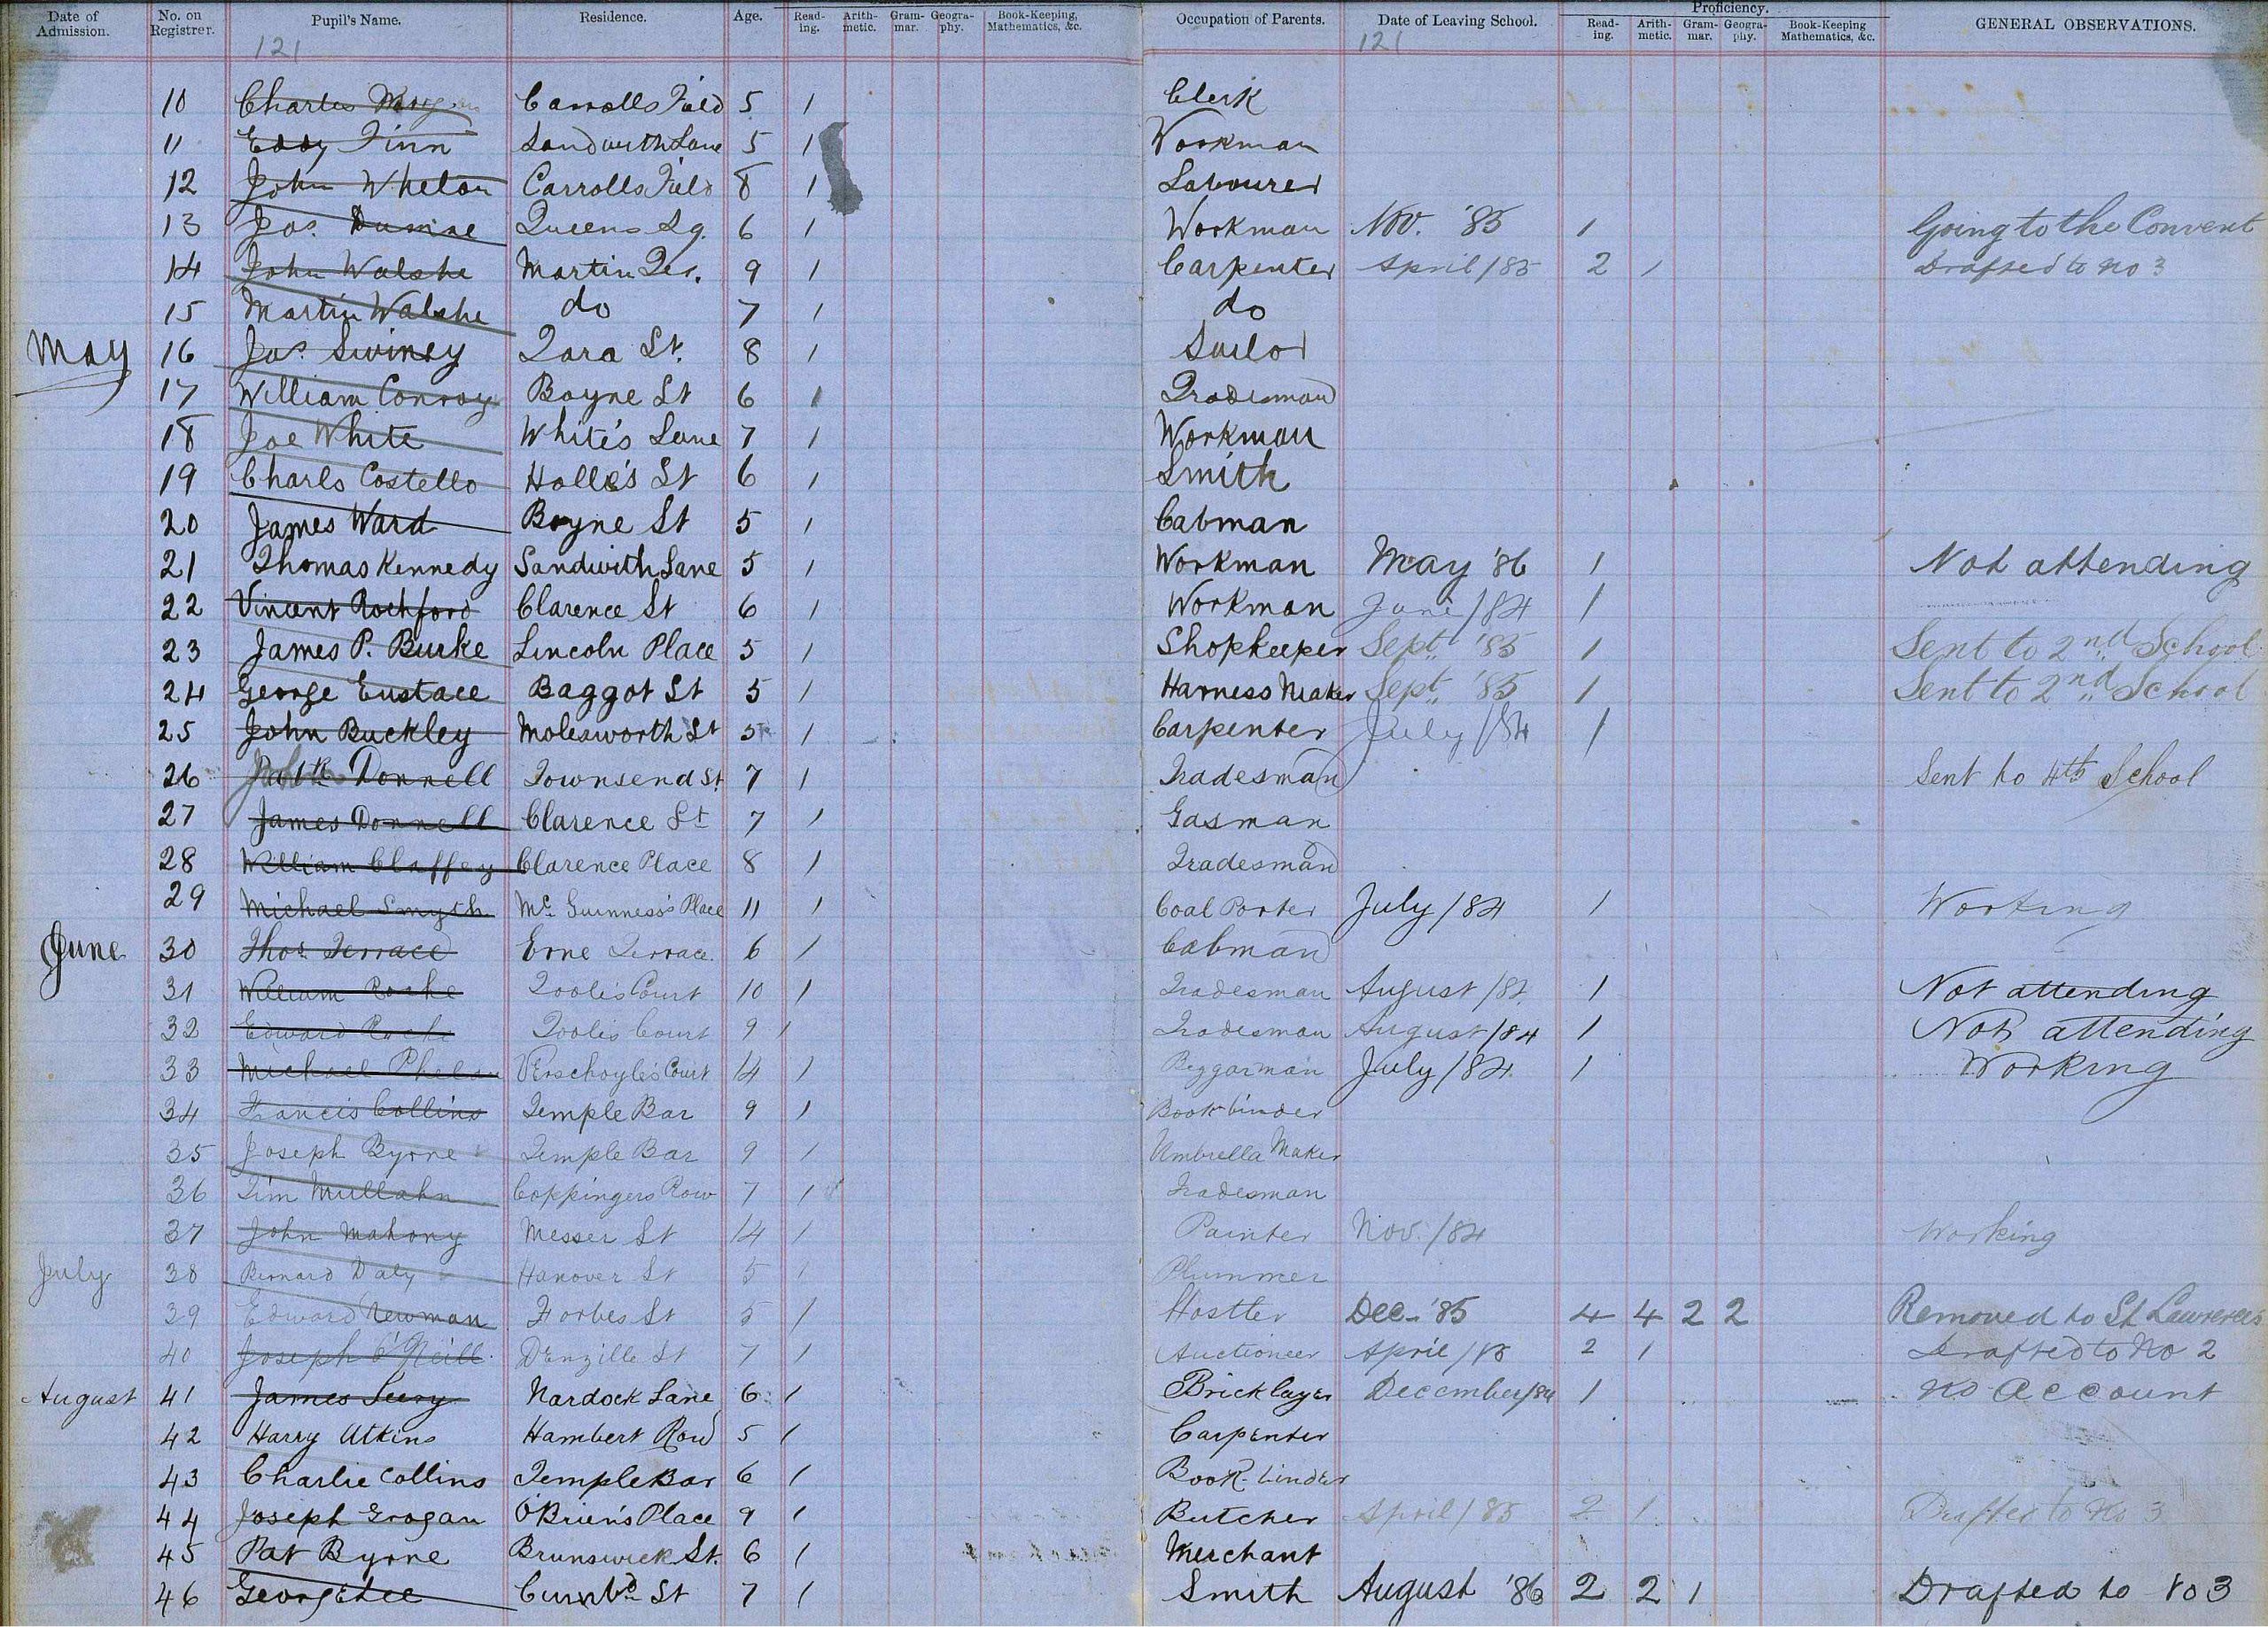 Date of Admission. No. on Registrer. Pupil's Name. Residence. Age. Read-ing. Arith-metic. Gram-mar. Geogra-phy. Book-Keeping, Mathematics, &c. Occupation of Parents. Date of Leaving School. Proficiency. Read-ing. Arith-metic. Gram-mar. Geogra-phy. Book-Keeping Mathematics, &c. GENERAL OBSERVATIONS.
121 121
10 Charles Carrolls Field 5 1 Clerk
11 Eddy Finn Sandwith Lane 5 1 Workman
12 John Whelan Carrolls Field 8 1 Labourer
13 Jas. Queens Sq. 6 1 Workman Nov. '85 1 Going to the Convent
14 John Walshe Martin Ter. 9 1 Carpenter April/85 2 1 Drafted to No 3
15 Martin Walshe do 7 1 do
May 16 Jas. Swiney Tara St. 8 1 Sailor
17 William Conroy Boyne St 6 1 Tradesman
18 Joe White White's Lane 7 1 Workman
19 Charls Costello Holle's St 6 1 Smith
20 James Ward Boyne St 5 1 Cabman
21 Thomas Kennedy Sandwith Lane 5 1 Workman May '86 1 Not attending
22 Vincent Rochford Clarence St 6 1 Workman June/84 1
23 James P. Burke Lincoln Place 5 1 Shopkeeper Sept. '85 1 Sent to 2nd School
24 George Eustace Baggot St 5 1 Harness Maker Sept. '85 1 Sent to 2nd School
25 John Buckley Molesworth St 5 1 Carpenter July/84 1
26 Donnell Townsend St. 7 1 Tradesman Sent to 4th School
27 James Donnell Clarence St 7 1 Gasman
28 William Claffey Clarence Place 8 1 Tradesman
29 Michael Smyth Mc Guinness's Place 11 1 Coal Porter July/84 1 Working
June 30 Thos. Terrace Erne Terrace. 6 1 Cabman
31 William Roche Toole's Court 10 1 Tradesman August/84 1 Not attending
32 Edward Roche Toole's Court 9 1 Tradesman August/84 1 Not attending
33 Michael Phelan Verschoyle's Court 14 1 Beggarman July/84 1 Working
34 Francis Collins Temple Bar 9 1 Book binder
35 Joseph Byrne Temple Bar 9 1 Umbrella Maker
36 Tim Mullahn Coppingers Row 7 1 Tradesman
37 John Mahony Messer St 14 1 Painter Nov./84 Working
July 38 Bernard Daly Hanover St 5 1 Plummer
39 Edward Newman Forbes St 5 1 Hostler Dec. '85 4 4 2 2 Removed to St Lawrences
40 Joseph O'Neill Denzille St 7 1 Auctioneer April/85 2 1 Drafted to No 2
August 41 James Leery Nardock Lane 6 1 Bricklayer December/84 1 No Account
42 Harry Atkins Hambert Row 5 1 Carpenter
43 Charlie Collins Temple Bar 6 1 Book-binder
44 Joseph Grogan O'Brien's Place 9 1 Butcher April/85 2 1 Drafted to No 3
45 Pat Byrne Brunswick St. 6 1 Merchant
46 George Lee St 7 1 Smith August '86 2 2 1 Drafted to No 3